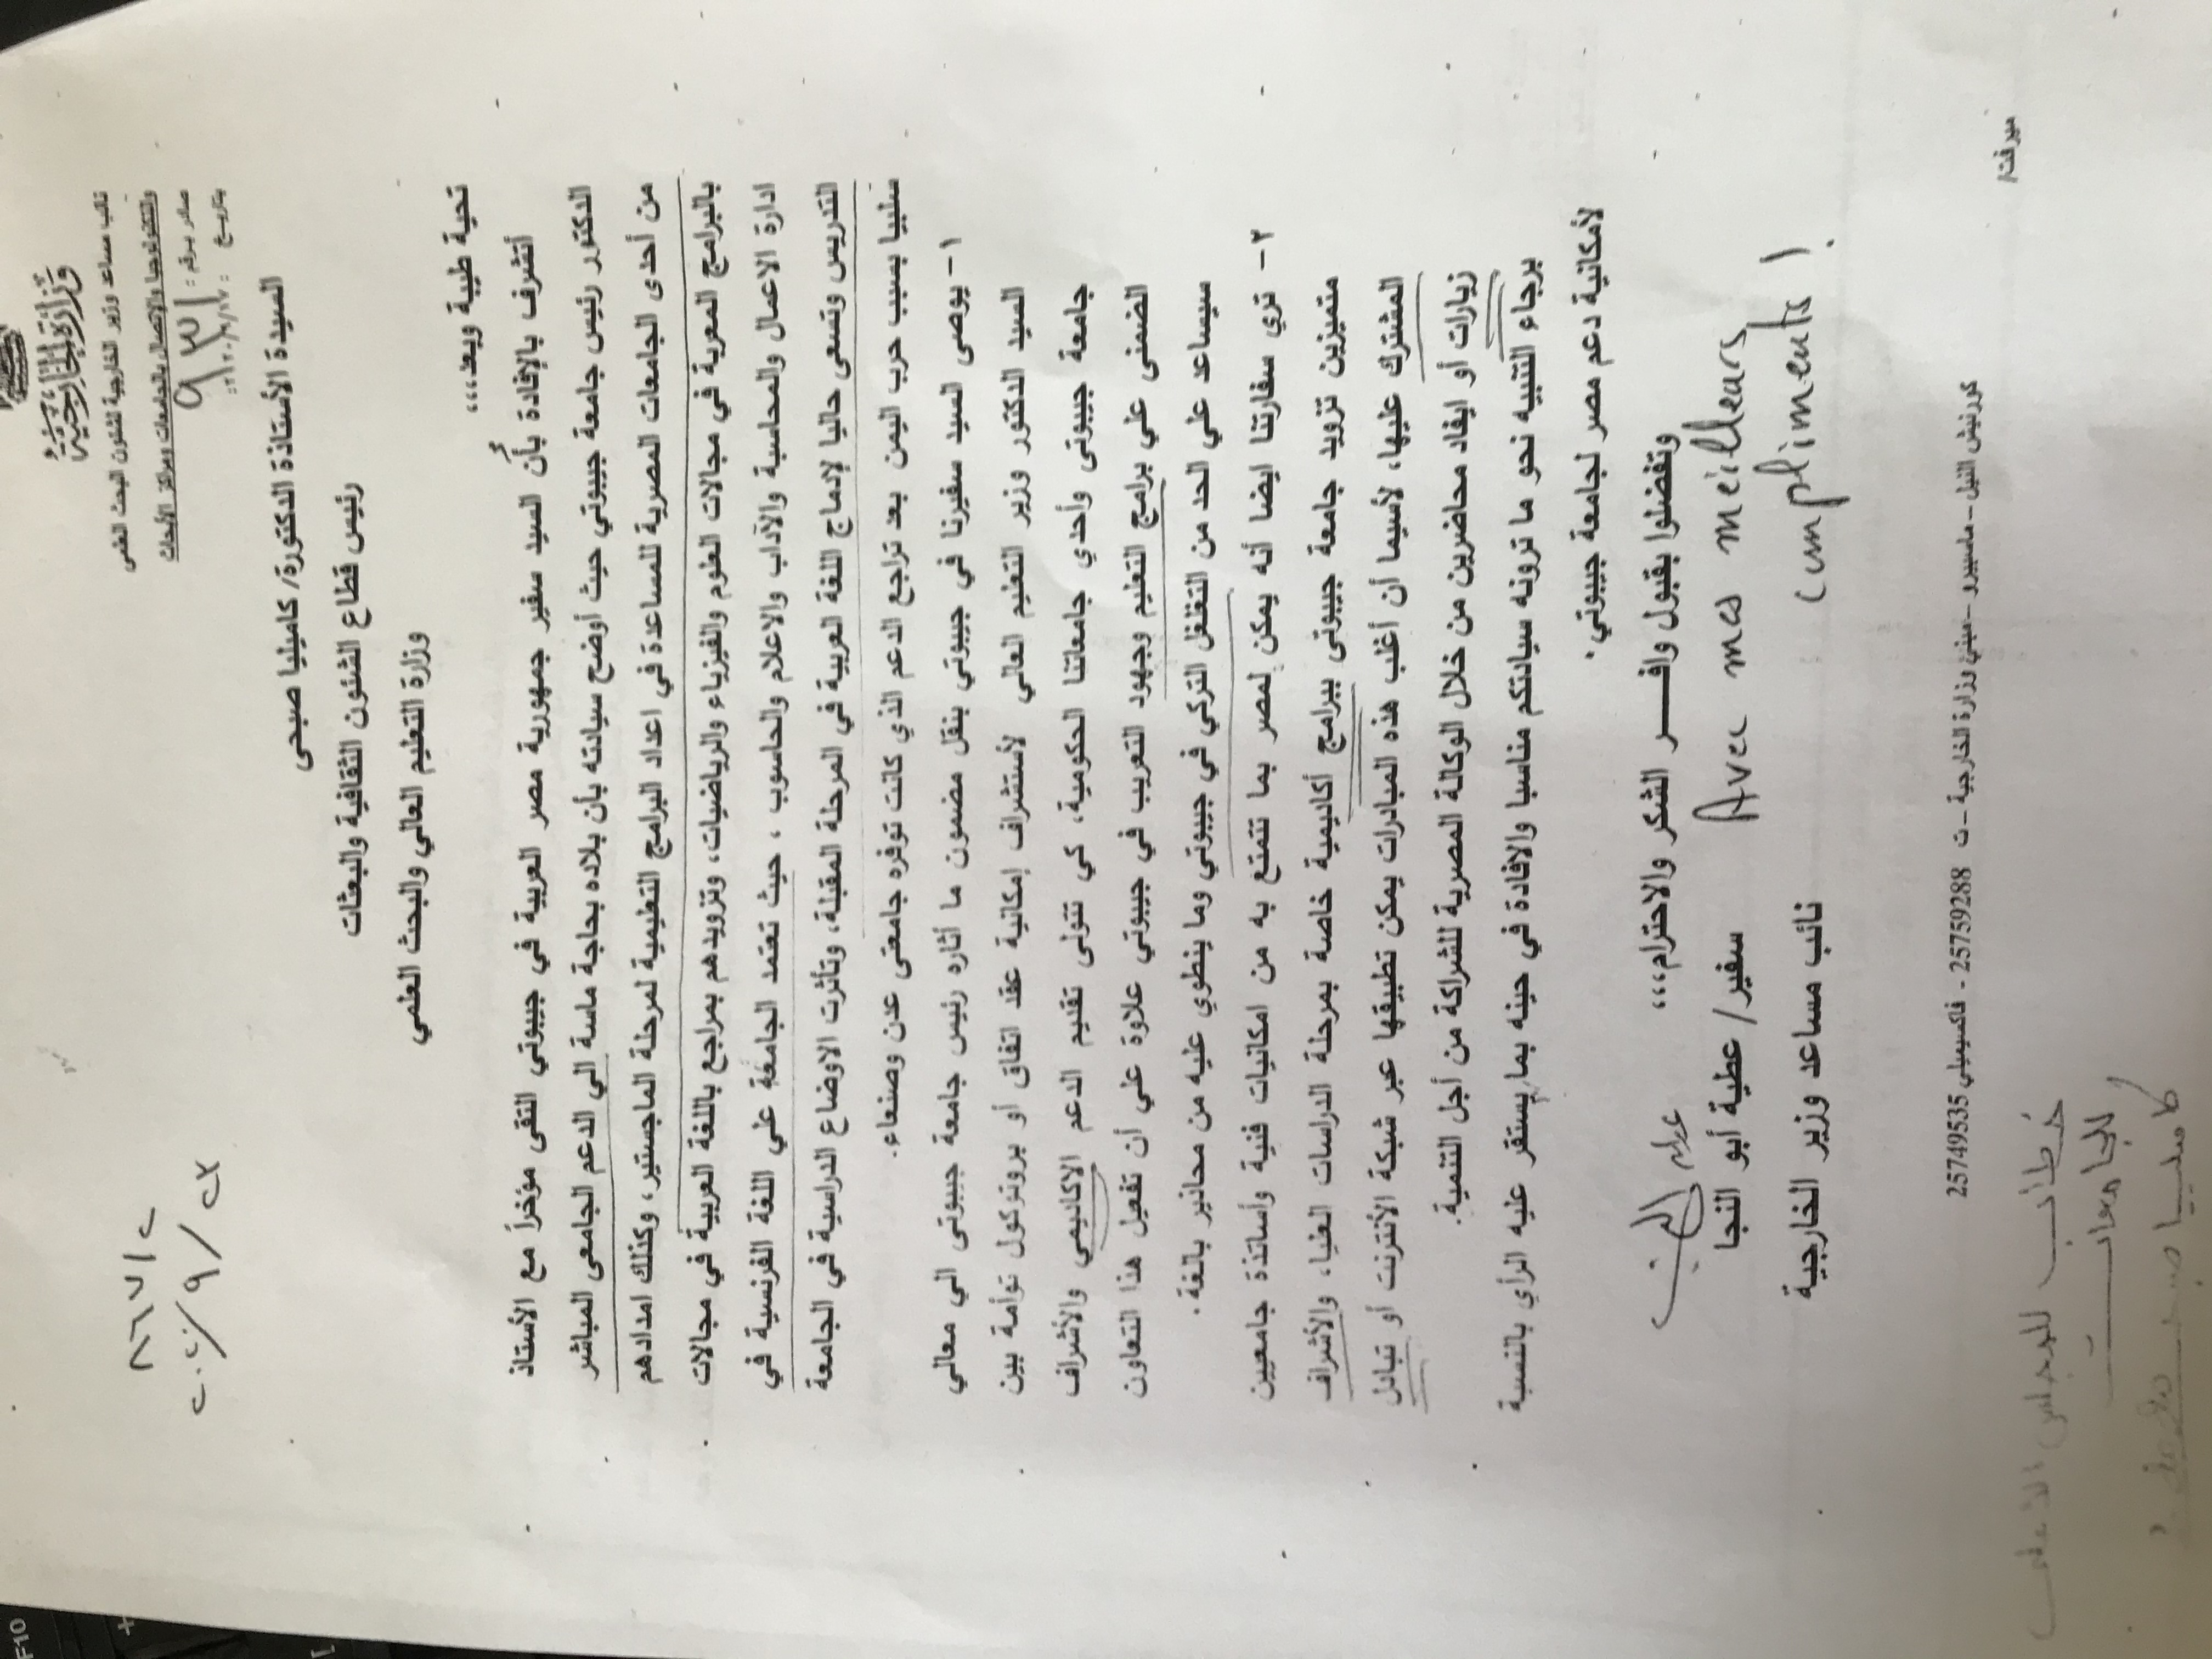 وزارة الخارجية
نائب مساعد وزير الخارجية لشئون البحث العلمى
والتكنولوجيا والاتصال بالجامعات ومراكز الأبحاث
صادر برقم : ٩٣١
بتاريخ :
٨٦٧١٢
٢٠٢٠/٩/٢٣
السيدة الأستاذة الدكتورة/ كاميليا صبحى
رئيس قطاع الشئون الثقافية والبعثات
وزارة التعليم العالي والبحث العلمي
تحية طيبة وبعد،،،
أتشرف بالإفادة بأن السيد سفير جمهورية مصر العربية في جيبوتي التقى مؤخراً مع الأستاذ
الدكتور رئيس جامعة جيبوتي حيث أوضح سيادته بأن بلاده بحاجة ماسة الي الدعم الجامعى المباشر
من أحدى الجامعات المصرية للمساعدة في اعداد البرامج التعليمية لمرحلة الماجستير، وكذلك امدادهم
بالبرامج المعربة في مجالات العلوم والفيزياء والرياضيات، وتزويدهم بمراجع باللغة العربية في مجالات
ادارة الاعمال والمحاسبة والآداب والاعلام والحاسوب ، حيث تعتمد الجامعة علي اللغة الفرنسية في
التدريس وتسعى حاليا لإدماج اللغة العربية في المرحلة المقبلة، وتأثرت الاوضاع الدراسية في الجامعة
سلبيا بسبب حرب اليمن بعد تراجع الدعم الذي كانت توفره جامعتى عدن وصنعاء.
١- يوصى السيد سفيرنا في جيبوتي بنقل مضمون ما أثاره رئيس جامعة جيبوتى الي معالي
السيد الدكتور وزير التعليم العالي لأستشراف إمكانية عقد اتفاق أو بروتركول توأمة بين
جامعة جيبوتى وأحدي جامعاتنا الحكومية، كي تتولى تقديم الدعم الاكاديمي والأشراف
الضمنى علي برامج التعليم وجهود التعريب في جيبوتي علاوة علي أن تفعيل هذا التعاون
سيساعد علي الحد من التغلغل التركي في جيبوتي وما ينطوي عليه من محاذير بالغة.
٢- تري سفارتنا ايضا أنه يمكن لمصر بما تتمتع به من امكانيات فنية وأساتذة جامعيين
متميزين تزويد جامعة جيبوتى ببرامج أكاديمية خاصة بمرحلة الدراسات العليا، والأشراف
المشترك عليها، لأسيما أن أغلب هذه المبادرات يمكن تطبيقها عبر شبكة الأنترنت أو تبادل
زيارات أو ايفاد محاضرين من خلال الوكالة المصرية للشراكة من أجل التنمية.
برجاء التنبيه نحو ما ترونه سيادتكم مناسبا والافادة في حينه بما يستقر عليه الرأي بالنسبة
لأمكانية دعم مصر لجامعة جيبوتي.
وتفضلوا بقبول وافـــر الشكر والاحترام،،،
Avec mes meilleurs
compliments !
سفير/ عطية أبو النجا
نائب مساعد وزير الخارجية
ميرفت/
كورنيش النيل – ماسبيرو – مبني وزارة الخارجية – ت 25759288 – فاكسيميلي 25749535
خطاب للمجلس الأعلى
للجامعات
كاميليا صبحى